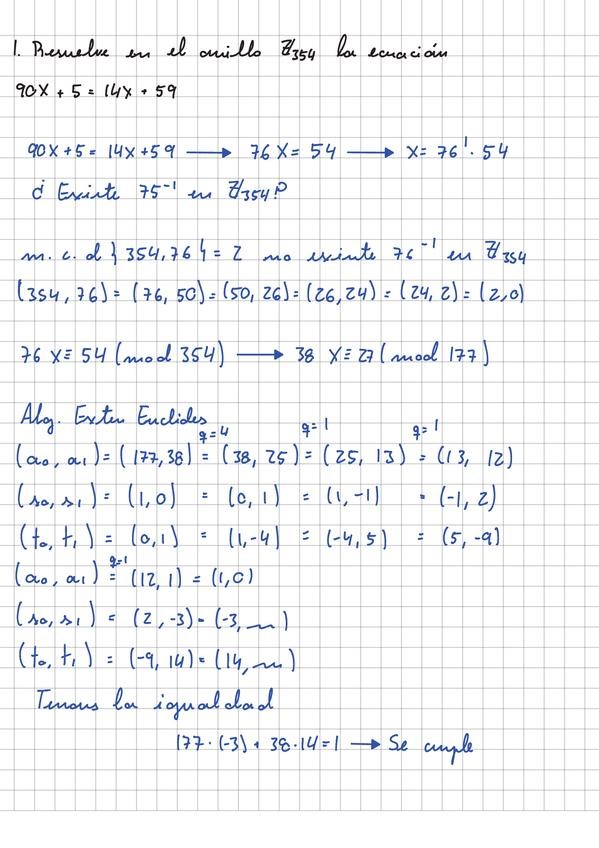 1. Resuelve en el anillo ℤ354 la ecuación
90X + 5 = 14X + 59
90X + 5 = 14X + 59 ⟶ 76 X = 54 ⟶ X = 76^1 · 54
¿ Existe 75^-1 en ℤ354?
m. c. d { 354, 76 } = 2 no existe 76^-1 en ℤ354
(354, 76) = (76, 50) = (50, 26) = (26, 24) = (24, 2) = (2, 0)
76 X ≡ 54 (mod 354) ⟶ 38 X ≡ 27 (mod 177)
Alg. Exten Euclides
q=4 q=1 q=1
(a0, a1) = (177, 38) = (38, 25) = (25, 13) = (13, 12)
(s0, s1) = (1, 0) = (0, 1) = (1, -1) = (-1, 2)
(t0, t1) = (0, 1) = (1, -4) = (-4, 5) = (5, -9)
q=1
(a0, a1) = (12, 1) = (1, 0)
(s0, s1) = (2, -3) = (-3, ~)
(t0, t1) = (-9, 14) = (14, ~)
Tenemos la igualdad
177 · (-3) + 38 · 14 = 1 ⟶ Se cumple